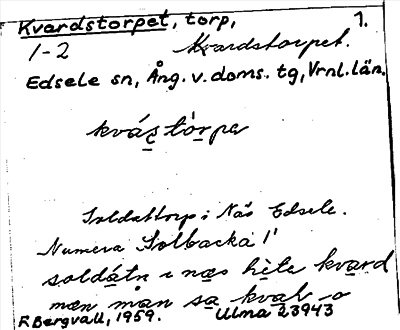 Kvardstorpet, torp, 1.
1-2 Kvardstorpet.
Edsele sn, Ång. v. doms. tg, Vrnl. län.
Soldattorp i Näs Edsele.
Numera Solbacka 1¹
soldátn i næs hète kvard
mæn man sa kval-o
R Bergvall, 1959. Ulma 23943